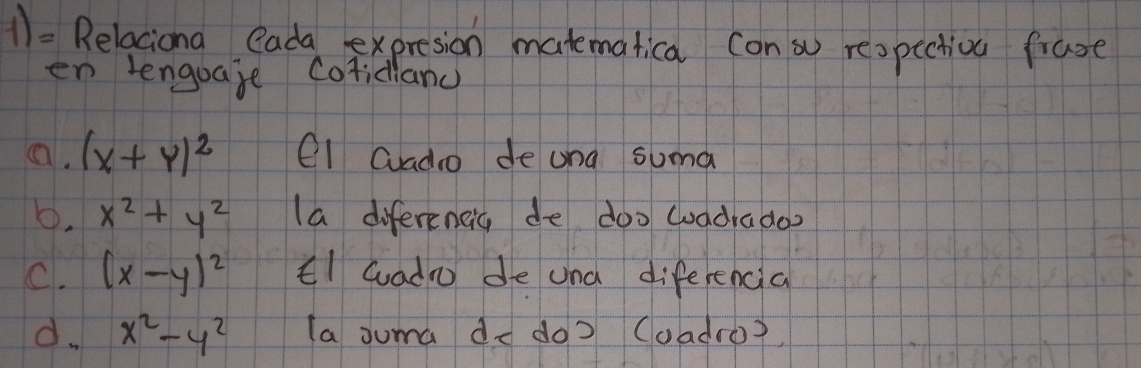 1)= Relaciona Cada expresión matematica Con su respectiva frase
en lenguaje Cotidiano
a. (x+y)² El Cuadro de una suma
b. x² + y² la diferencia de dos Cuadrados
c. (x-y)² El Cuadro de una diferencia
d. x² - y² la suma de dos Cuadros.